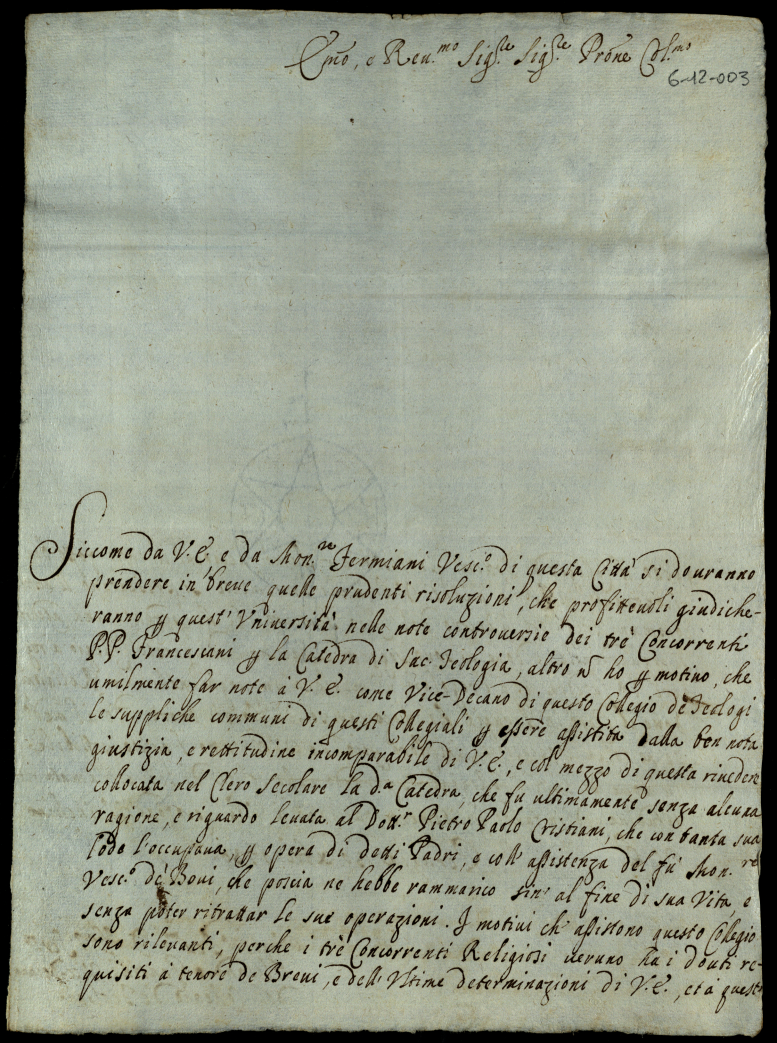 Emo, e Reu.mo Sig.re Sig.re Prone Col.mo
6-12-003
Siccome da V. E. e da Mon.re Fermiani Vesc.o di questa Città si douranno
prendere in breue quelle prudenti risoluzioni, che profitteuoli giudiche-
ranno p quest' Vniuersità nelle note controuersie dei trè Concorrenti
P.P. Francescani p la Catedra di Sac. Teologia, altro ñ ho p motiuo, che
umilmente far note à V. E. come Vice-Decano di questo Collegio dè Teologi
le suppliche communi di questi Collegiali p essere assistiti dalla ben nota
giustizia, e rettitudine incomparabile di V. E., e col mezzo di questa riuedere
collocata nel Clero secolare la d.a Catedra, che fu ultimamente senza alcuna
ragione, e riguardo leuata al Dott.r Pietro Paolo Cristiani, che con tanta sua
lode l'occupaua, p opera di detti Padri, e coll' assistenza del fù Mon.re
Vesc.o dè Boui, che poscia ne hebbe rammarico sin' al fine di sua Vita, e
senza poter ritrattar le sue operazioni. I motiui ch' assistono questo Collegio
sono rileuanti, perche i trè Concorrenti Religiosi ueruno ha i douti re-
quisiti à tenore de Breui, e dell' Vltime determinazioni di V. E., et à quest